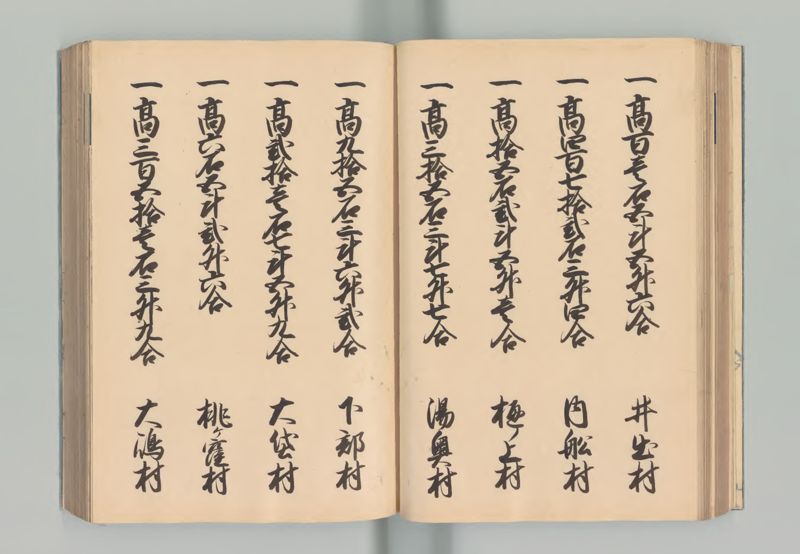 一高百壱石五斗五升六合 井出村
一高四百七拾弐石三升四合 内船村
一高拾五石弐斗五升壱合 椿ノ上村
一高三拾五石三斗七升七合 湯奥村
一高九拾五石三斗六升弐合 下部村
一高弐拾壱石七斗五升九合 大袋村
一高六石五斗弐升六合 桃ヶ窪村
一高三百五拾壱石三升九合 大嶋村